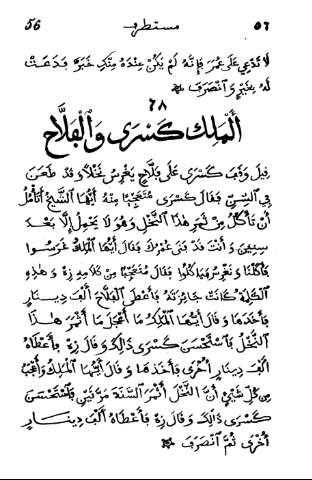 56 مستطرف ٥٦
لَا تَدْعِي عَلَى عُمَرَ فَإِنَّهُ لَمْ يَكُنْ عِنْدَهُ مِنْكِ خَبَرٌ فَدَعَتْ
لَهُ بِخَيْرٍ وَٱنْصَرَفَ
٦٨
أَلْمَلِكُ كَسْرَى وَالْفَلَّاحُ
قِيلَ وَقَفَ كَسْرَى عَلَى فَلَّاحٍ يَغْرِسُ نَخْلًا وَقَدْ طَعَنَ
فِي السِّنِّ فَقَالَ كَسْرَى مُتَعَجِّبًا مِنْهُ أَيُّهَا الشَّيْخُ أَتَأْمُلُ
أَنْ تَأْكُلَ مِنْ ثَمَرِ هٰذَا النَّخْلِ وَهُوَ لَا يَحْمِلُ إِلَّا بَعْدَ
سِنِينَ وَأَنْتَ قَدْ فَنَى عُمْرُكَ فَقَالَ أَيُّهَا الْمَلِكُ غَرَسُوا
فَأَكَلْنَا وَنَغْرِسُ فَيَأْكُلُوا فَقَالَ مُتَعَجِّبًا مِنْ كَلَامِهِ زِهْ وَهٰذِهِ
الْكَلِمَةُ كَانَتْ جَائِزَتُهُ فَأَعْطَى الْفَلَّاحَ أَلْفَ دِينَارٍ
فَأَخَذَهَا وَقَالَ أَيُّهَا الْمَلِكُ مَا أَعْجَلَ مَا أَثْمَرَ هٰذَا
النَّخْلُ فَٱسْتَحْسَنَ كَسْرَى ذَالِكَ وَقَالَ زِهْ فَأَعْطَاهُ
أَلْفَ دِينَارٍ أُخْرَى فَأَخَذَهَا وَقَالَ أَيُّهَا الْمَلِكُ وَأَعْجَبُ
مِنْ كُلِّ شَيْءٍ أَنَّ النَّخْلَ أَثْمَرَ السَّنَةَ مَرَّتَيْنِ فَٱسْتَحْسَنَ
كَسْرَى ذَالِكَ وَقَالَ زِهْ وَأَعْطَاهُ أَلْفَ دِينَارٍ
أُخْرَى ثُمَّ ٱنْصَرَفَ